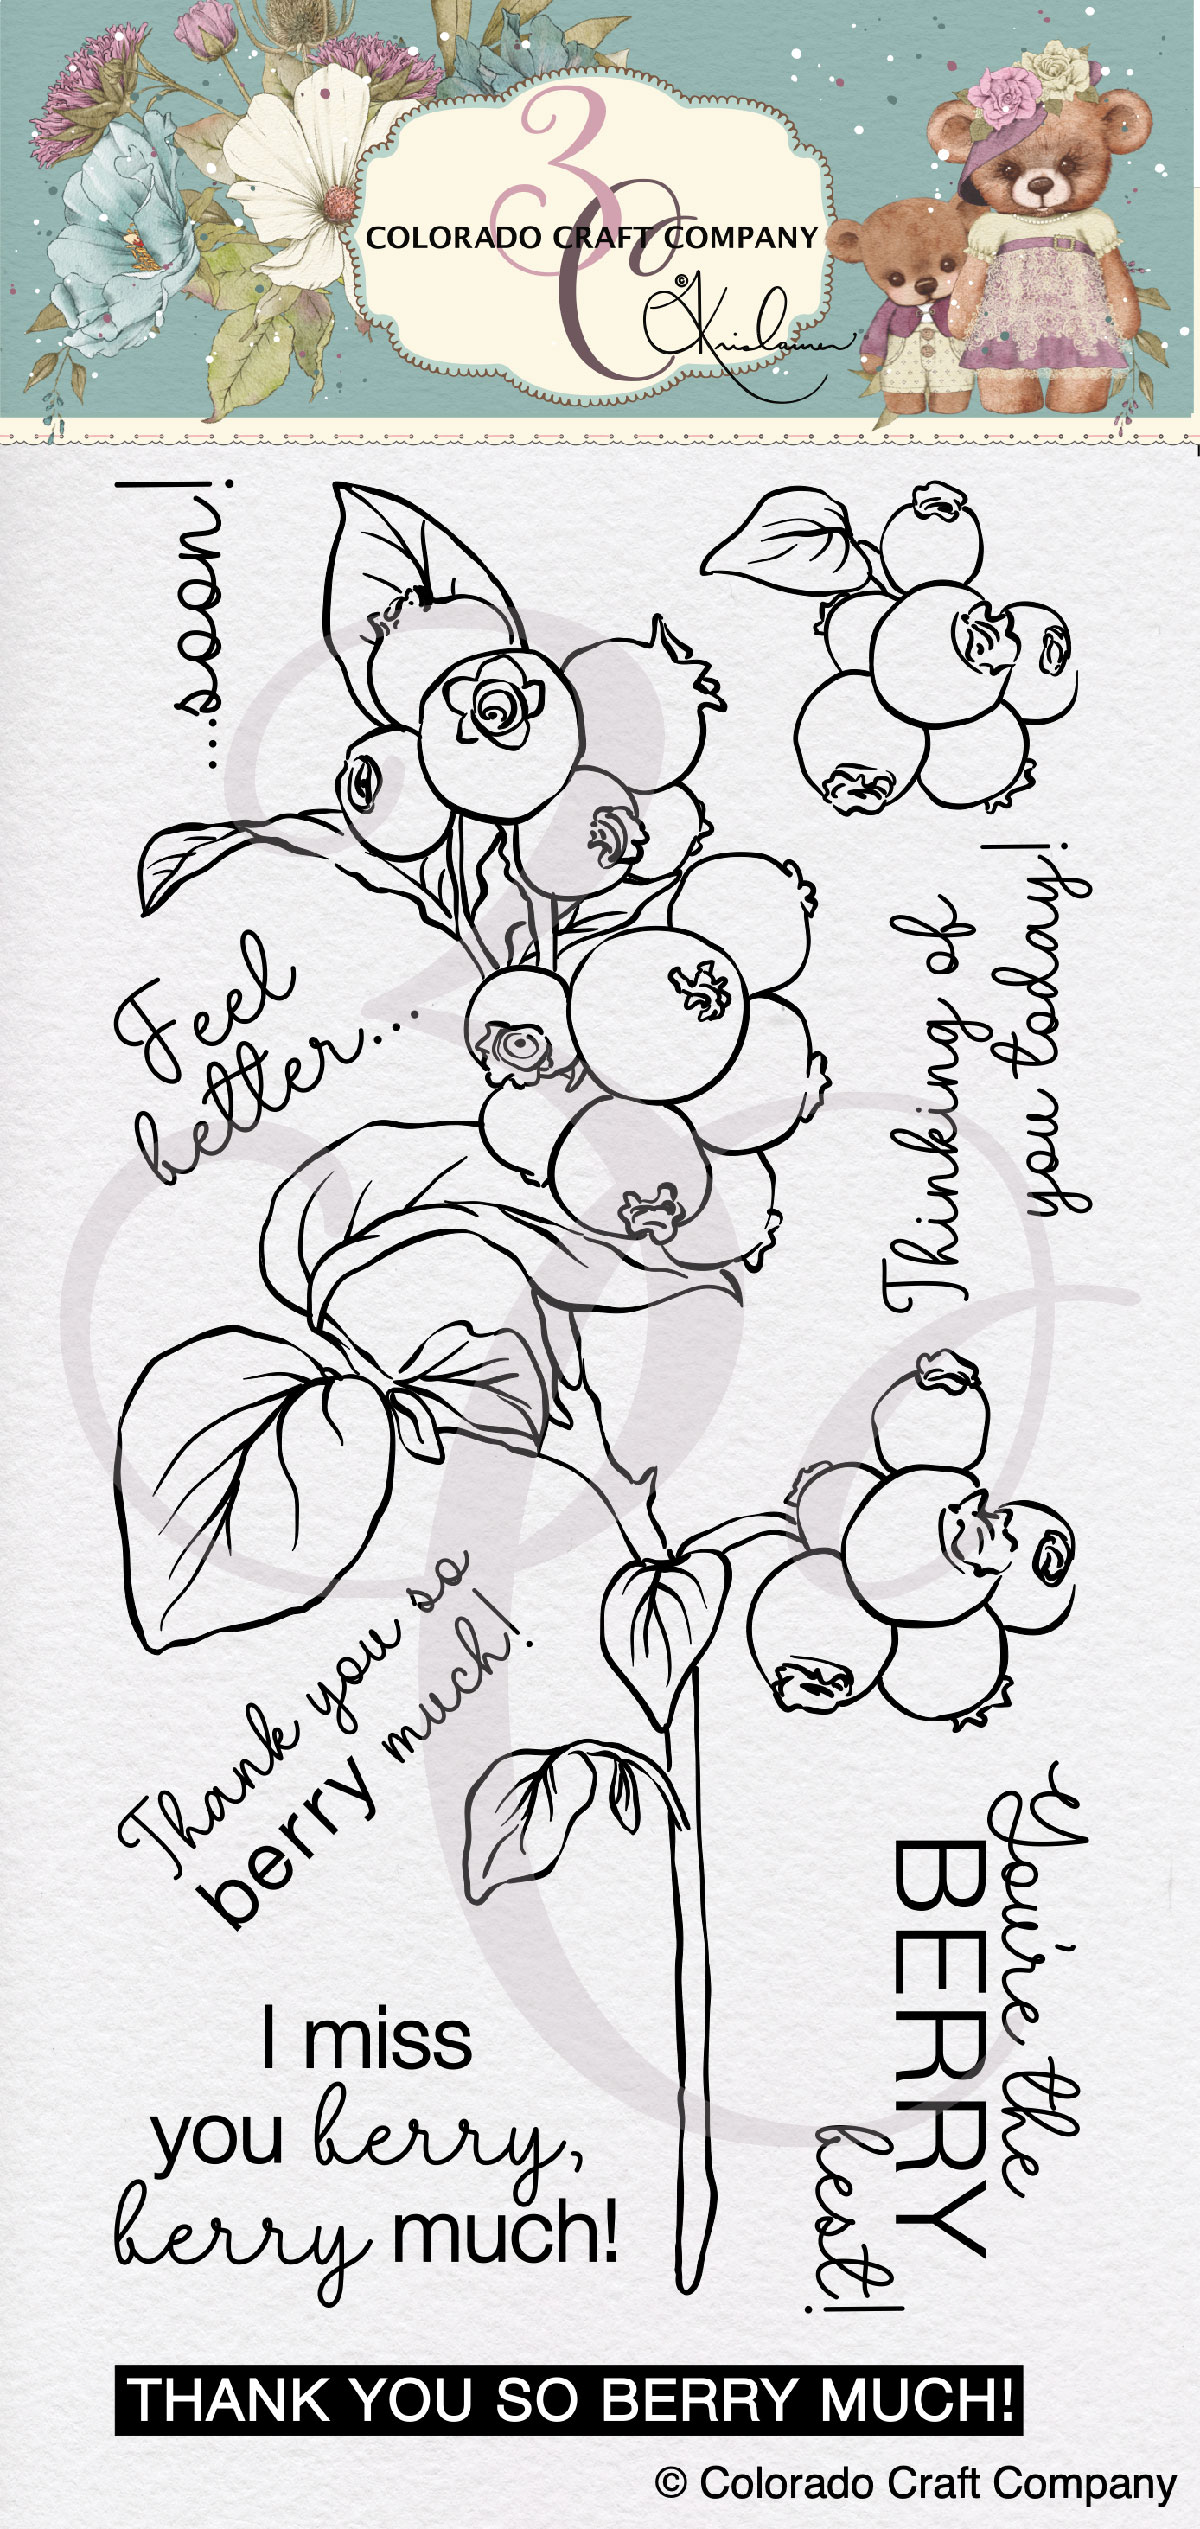 3C
COLORADO CRAFT COMPANY
© Krislauren
...soon!
Feel
better...
Thinking of
you today!
Thank you so
berry much!
You're the
BERRY
best!
I miss
you berry,
berry much!
THANK YOU SO BERRY MUCH!
© Colorado Craft Company